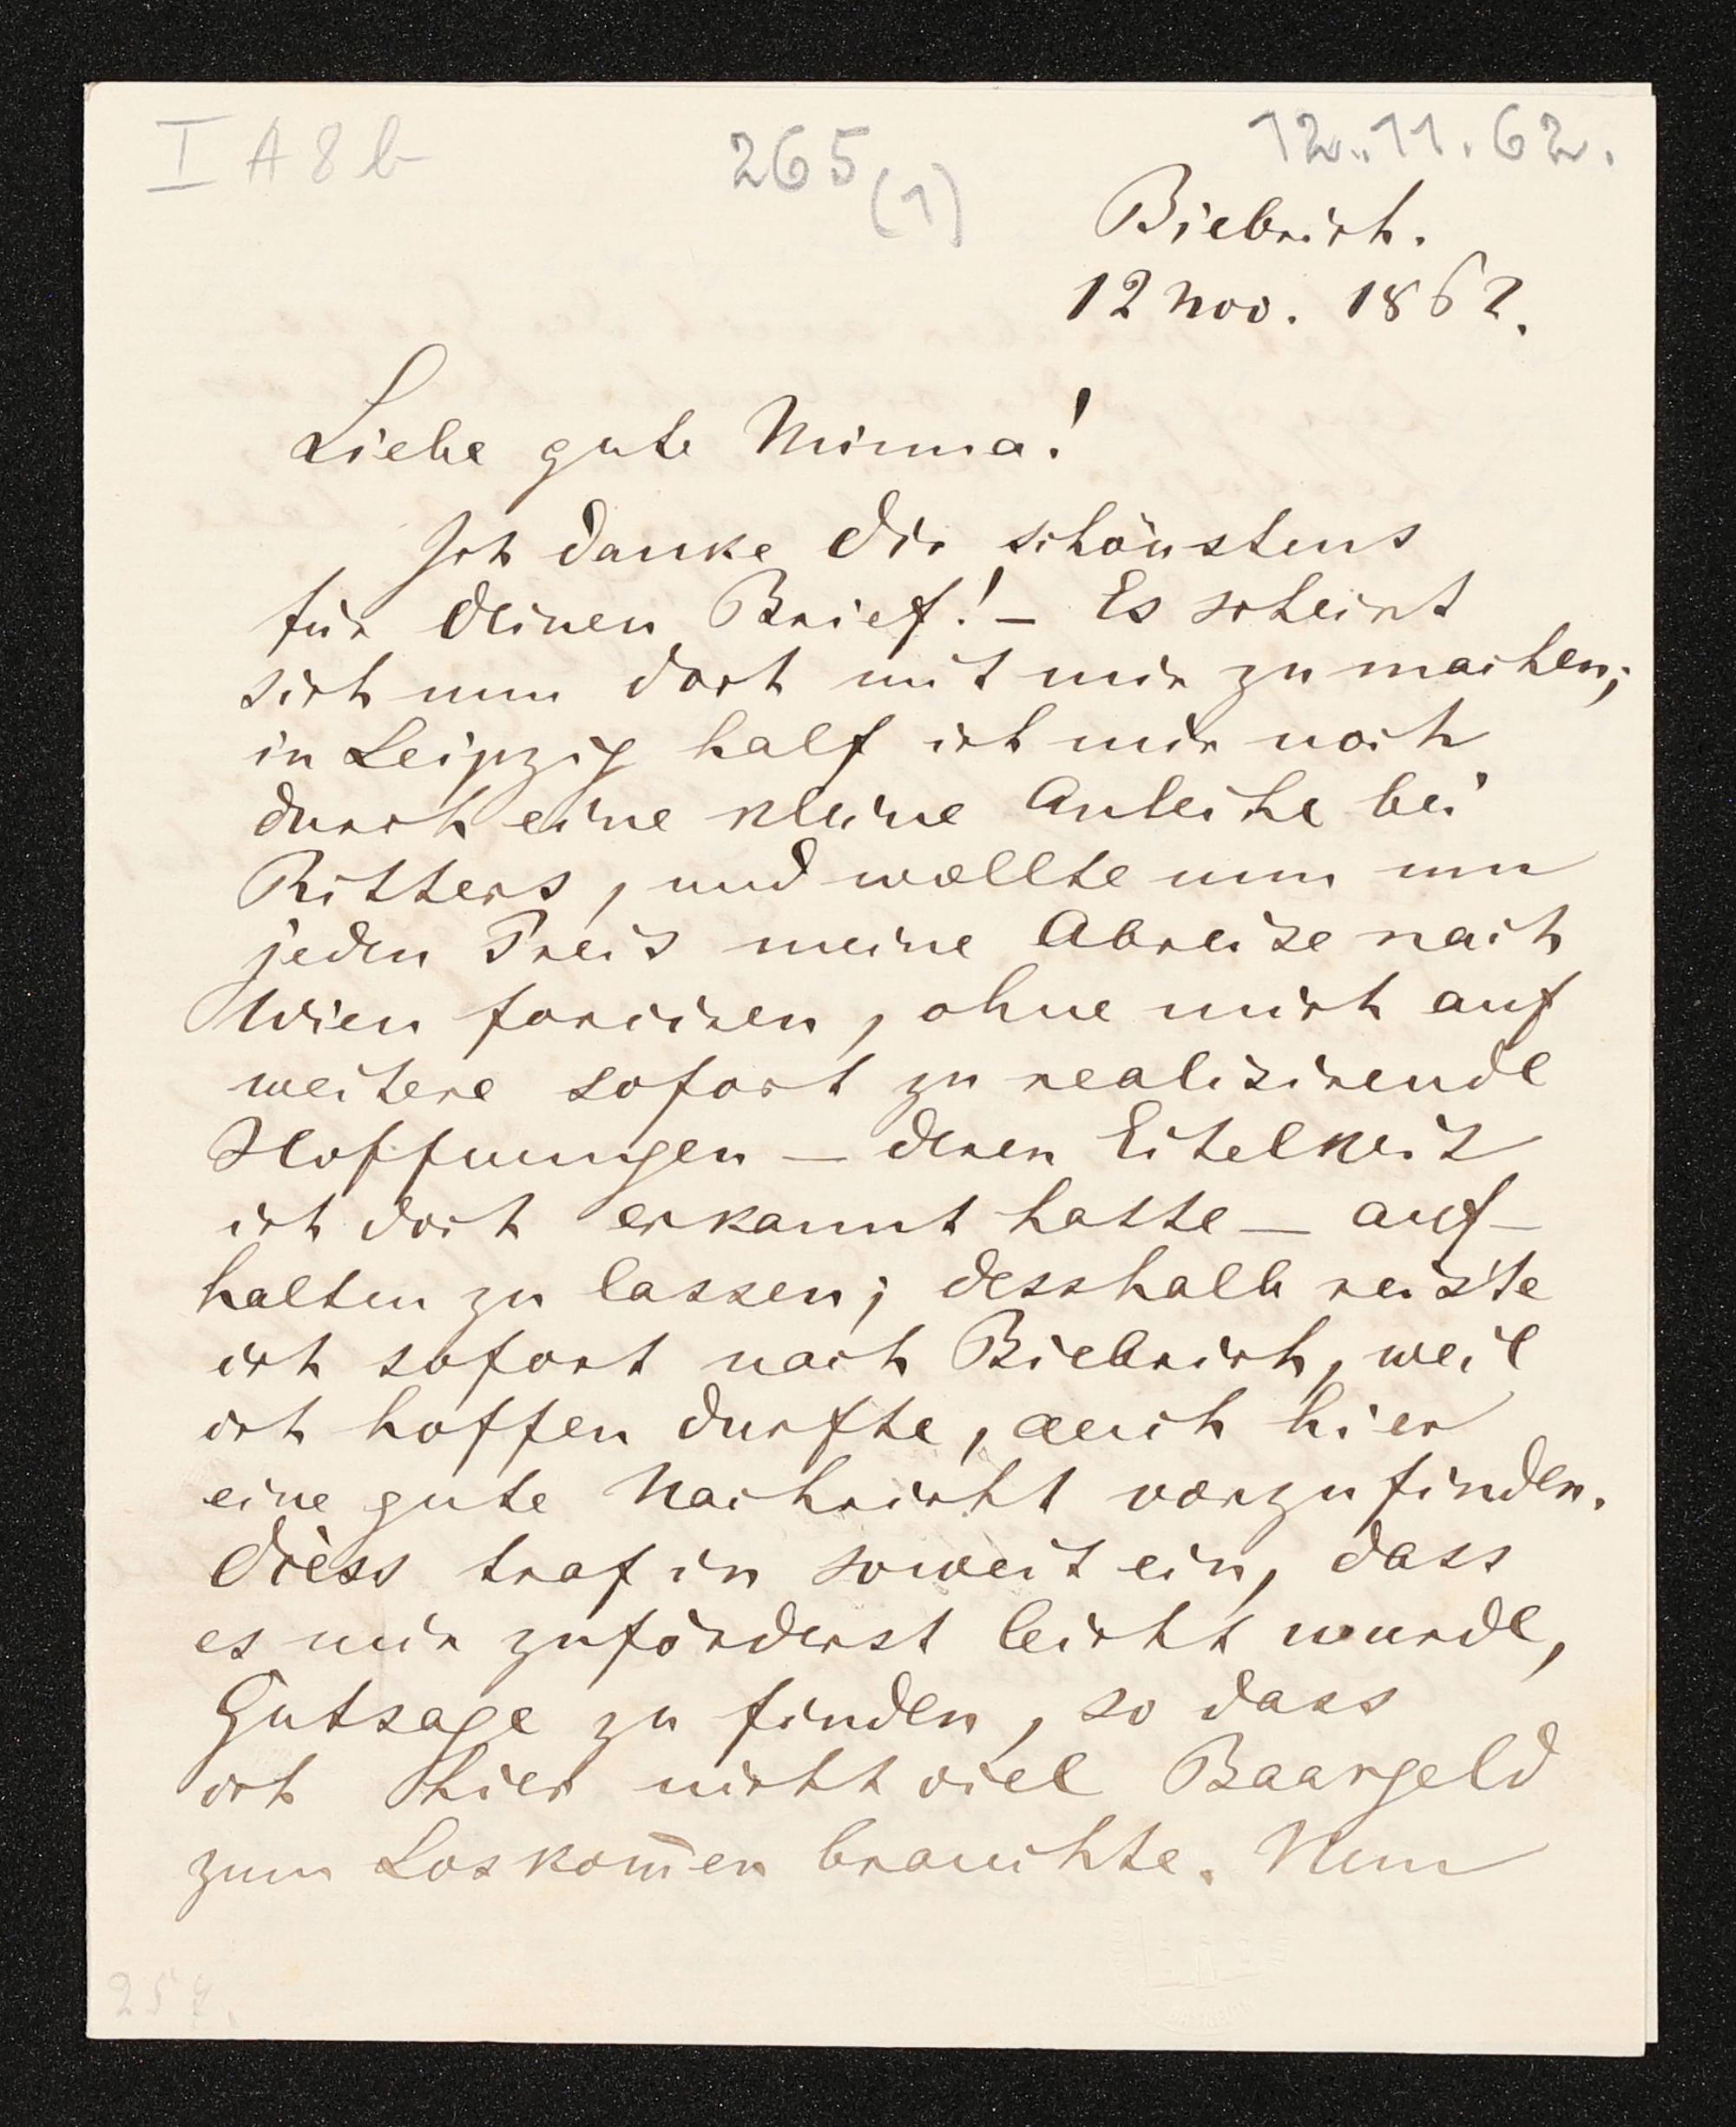 I A 8 b
265 (1)
12.11.62.
Biebrich.
12 Nov. 1862.
Liebe gute Minna!
Ich danke Dir schönstens
für Deinen Brief! – Es scheint
sich nun dort mit mir zu machen;
in Leipzig half ich mir noch
durch eine kleine Anleihe bei
Ritters, und wollte nun um
jeden Preis meine Abreise nach
Wien forciren, ohne mich auf
weitere sofort zu realisirende
Hoffnungen – deren Eitelkeit
ich dort erkannt hatte – auf-
halten zu lassen; desshalb reis'te
ich sofort nach Biebrich, weil
ich hoffen durfte, auch hier
eine gute Nachricht vorzufinden.
Diess traf in soweit ein, dass
es mir zuförderst leicht wurde,
Gutsage zu finden, so dass
ich hier nicht viel Baargeld
zum Loskom̅en brauchte. Nun